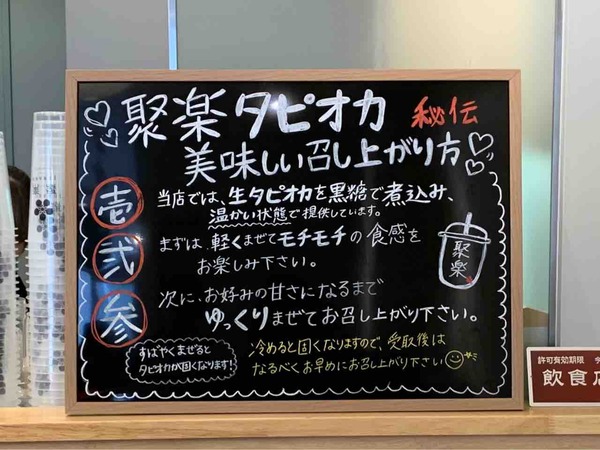 聚楽タピオカ 秘伝
美味しい召し上がり方
壱
当店では、生タピオカを黒糖で煮込み、
温かい状態で提供しています。
弐
まずは、軽くまぜてモチモチの食感を
お楽しみ下さい。
参
次に、お好みの甘さになるまで
ゆっくりまぜてお召し上がり下さい。
聚楽
すばやくまぜると
タピオカが固くなります!
冷めると固くなりますので、受取後は
なるべくお早めにお召し上がり下さい
許可有効期限
飲食店